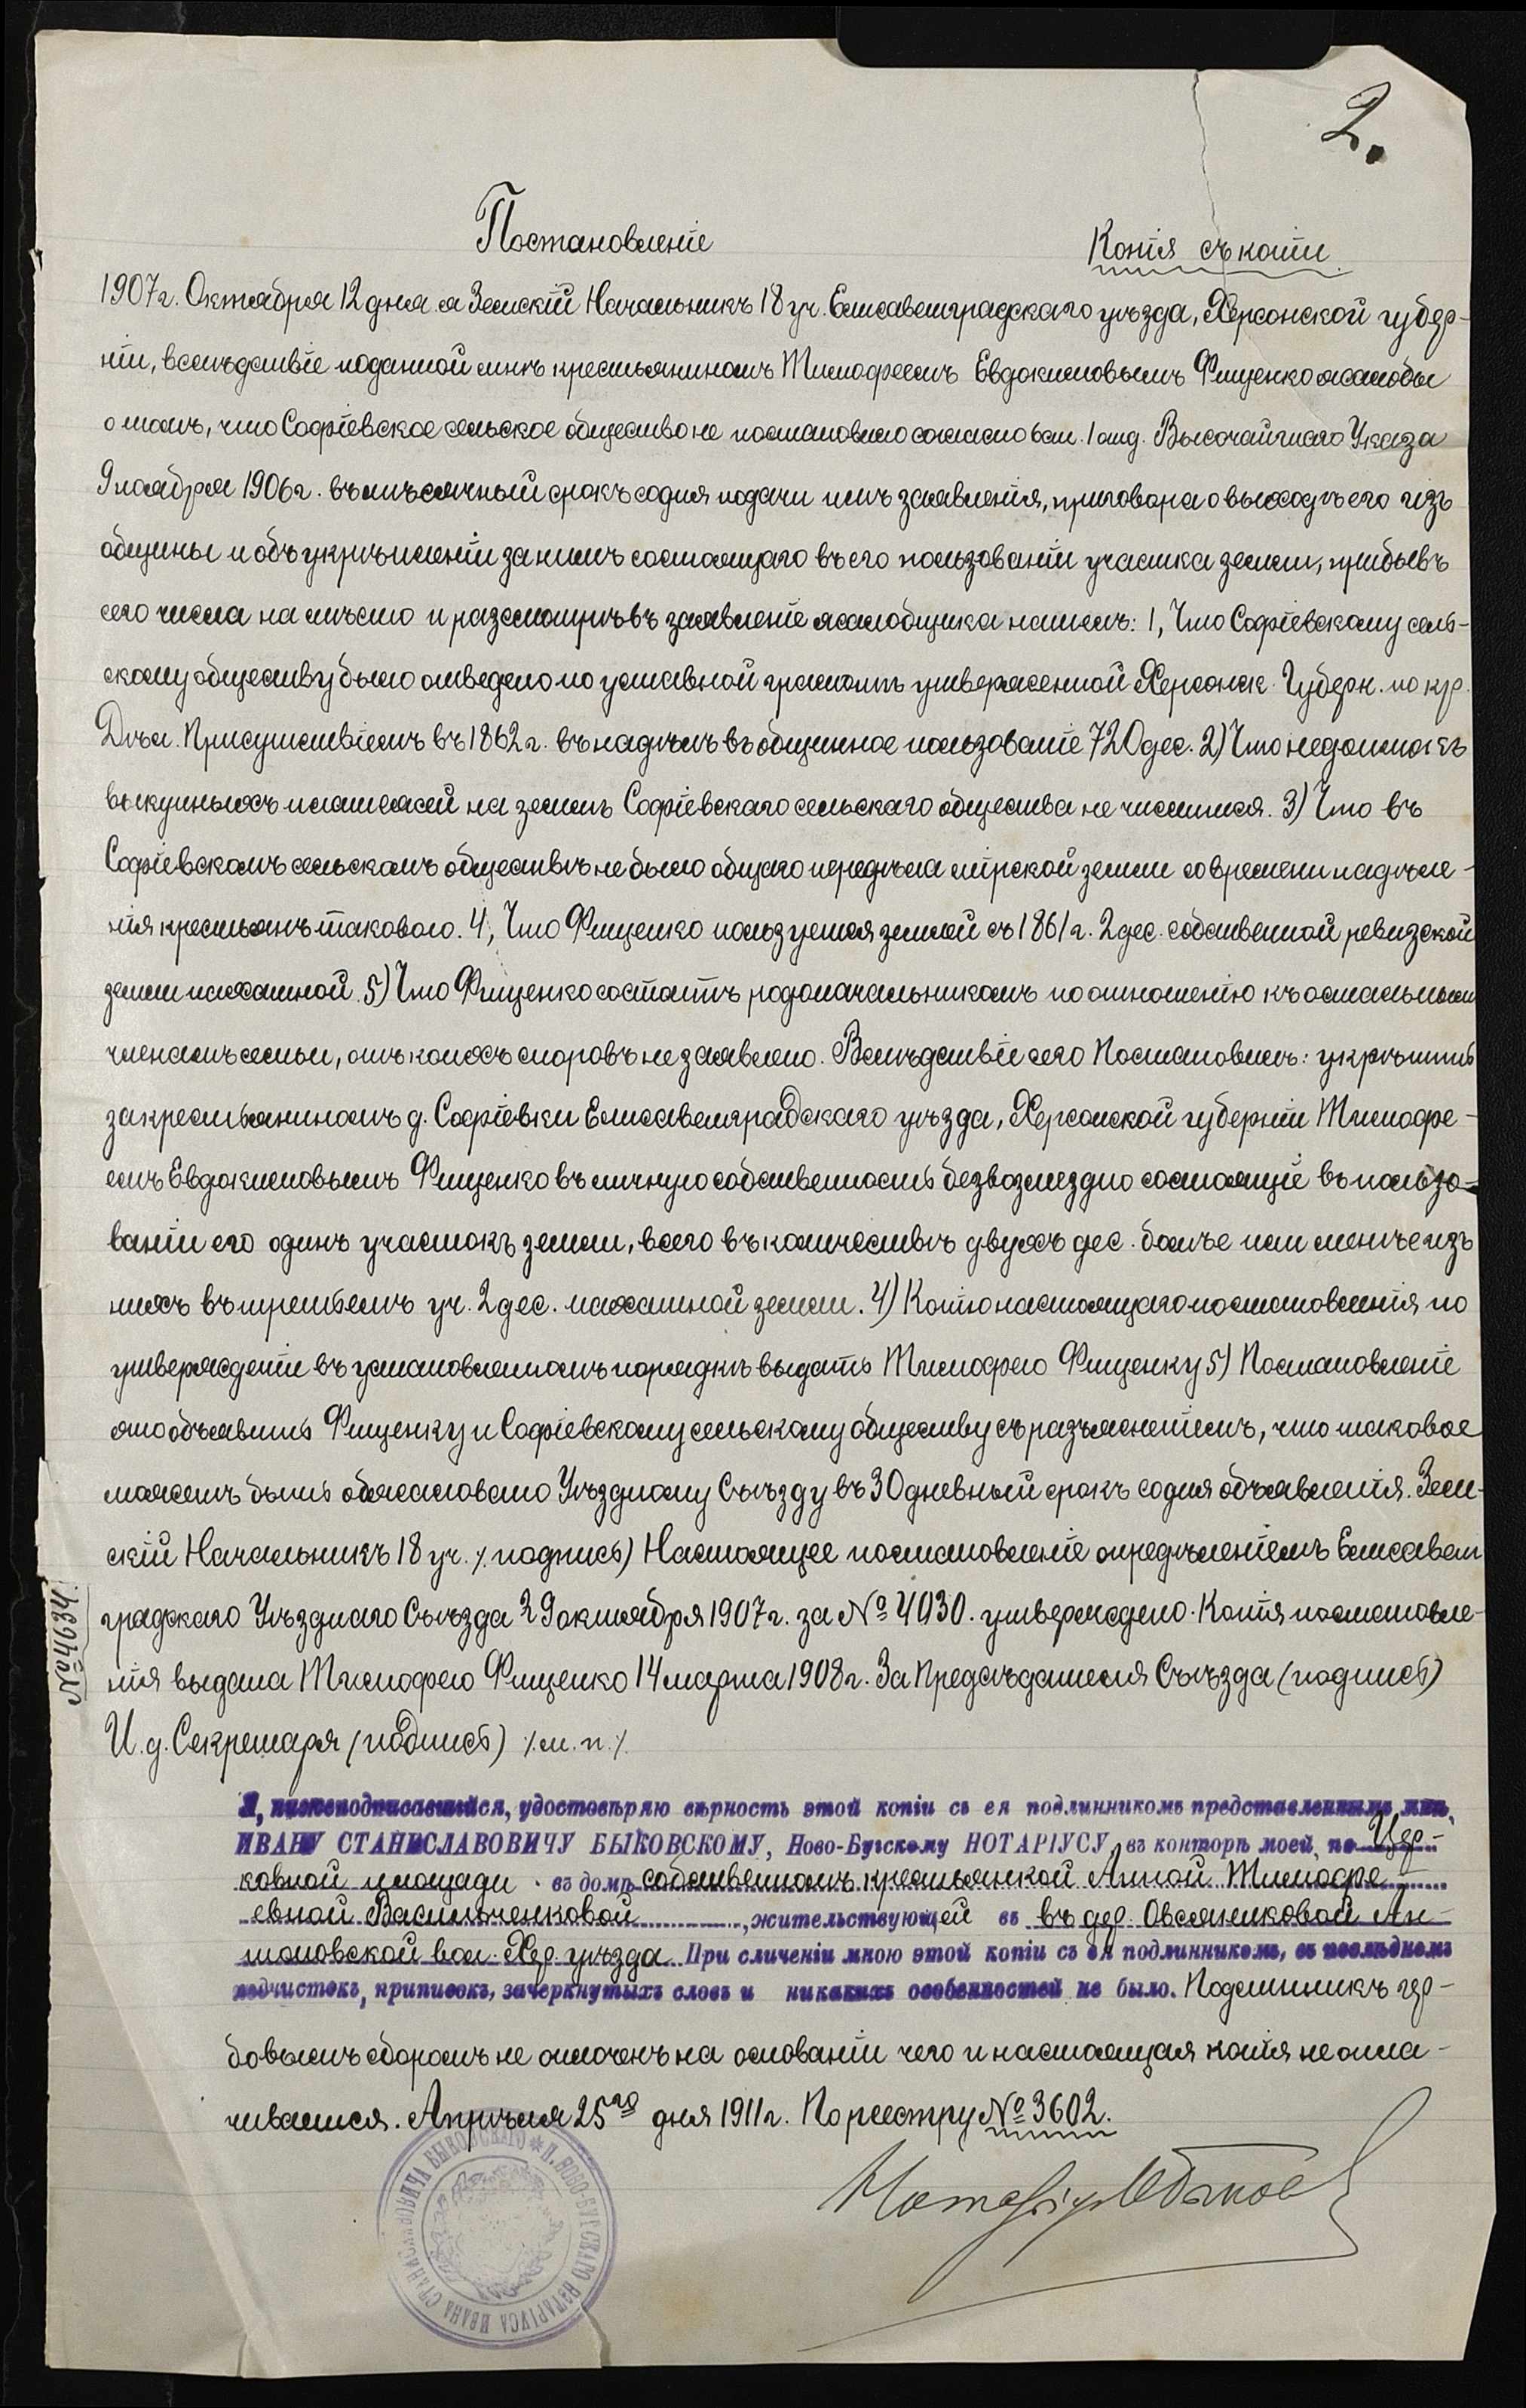 2.
Постановленіе
Копія съ копіи.
1907 г. Октября 12 дня я Земскій Начальникъ 18 уч. Елисаветградскаго уѣзда, Херсонской губер-
ніи, вслѣдствіе поданной мнѣ крестьяниномъ Тимофеемъ Евдокимовымъ Фищенко жалобы
о томъ, что Софіевское сельское общество не постановило согласно всл. 1 отд. Высочайшаго Указа
9 ноября 1906 г. въ мѣсячный срокъ со дня подачи имъ заявленія, приговора о выходѣ его изъ
общины и объ укрѣпленіи за нимъ состоящаго въ его пользованіи участка земли, прибывъ
сего числа на мѣсто и разсмотрѣвъ заявленіе жалобщика нашелъ: 1, Что Софіевскому сель-
скому обществу было отведено по уставной грамотѣ утвержденной Херсонск. Губерн. по кр.
Дѣл. Присутствіемъ въ 1862 г. въ надѣлъ въ общинное пользованіе 720 дес. 2) Что недоимокъ
выкупныхъ платежей на землѣ Софіевскаго сельскаго общества не числится. 3) Что въ
Софіевскомъ сельскомъ обществѣ не было общаго передѣла мірской земли со времени надѣле-
нія крестьянъ таковою. 4, Что Фищенко пользуется землей съ 1861 г. 2 дес. собственной ревизской
земли пахатной. 5) Что Фищенко состоитъ родоначальникомъ по отношенію къ остальнымъ
членамъ семьи, отъ коихъ споровъ не заявлено. Вслѣдствіе сего Постановилъ: укрѣпить
за крестьяниномъ д. Софіевки Елисаветградскаго уѣзда, Херсонской губерніи Тимофе-
емъ Евдокимовымъ Фищенко въ личную собственность безвозмездно состоящіе въ пользо-
ваніи его одинъ участокъ земли, всего въ количествѣ двухъ дес. болѣе или менѣе изъ
нихъ въ третьемъ уч. 2 дес. пахатной земли. 4) Копію настоящаго постановленія по
утвержденіи въ установленномъ порядкѣ выдать Тимофею Фищенку 5) Постановленіе
это объявить Фищенку и Софіевскому сельскому обществу съ разъясненіемъ, что таковое
можетъ быть обжаловано Уѣздному Съѣзду въ 30 дневный срокъ со дня объявленія. Зем-
скій Начальникъ 18 уч. /подпись) Настоящее постановленіе опредѣленіемъ Елисавет
градскаго Уѣзднаго Съѣзда 29 октября 1907 г. за № 4030. утверждено. Копія постановле-
нія выдана Тимофею Фищенко 14 марта 1908 г. За Предсѣдателя Съѣзда (подпись)
И. д. Секретаря (подпись) /.м. п./.
№ 4634.
Я, нижеподписавшійся, удостовѣряю вѣрность этой копіи съ ея подлинникомъ представленнымъ мнѣ,
ИВАНУ СТАНИСЛАВОВИЧУ БЫКОВСКОМУ, Ново-Бугскому НОТАРІУСУ въ конторѣ моей, по Цер-
ковной площади въ домѣ собственномъ крестьянкой Анной Тимофе-
евной Васильченковой, жительствующей въ въ дер. Овсяниковой Ан-
тоновской вол. Хер. уѣзда. При сличеніи мною этой копіи съ ея подлинникомъ, въ послѣднемъ
подчистокъ, приписокъ, зачеркнутыхъ словъ и никакихъ особенностей не было. Подлинникъ гер-
бовымъ сборомъ не оплоченъ на основаніи чего и настоящая копія не опла-
чивается. Апрѣля 25го дня 1911 г. По реестру № 3602.
Нотаріусъ
* П. НОВО-БУГСКАГО НОТАРІУСА ИВАНА СТАНИСЛАВОВИЧА БЫКОВСКАГО